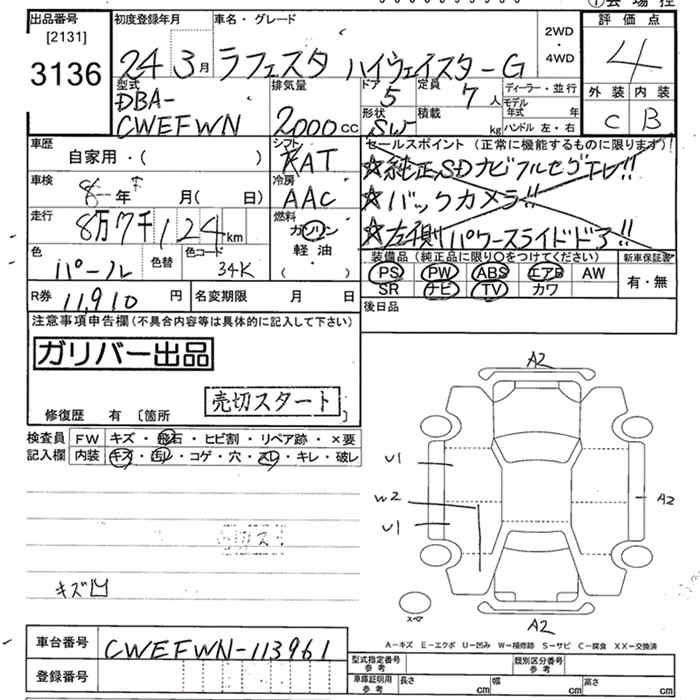 出品番号
[2131]
3136
初度登録年月
24 3月
車名・グレード
ラフェスタ ハイウェイスターG
2WD
・
4WD
評価点
4
外装 内装
C B
型式
DBA-
CWEFWN
排気量
2000cc
ドア
5
定員
7人
形状
SW
積載
kg
ディーラー・並行
モデル
年式 年
ハンドル 左・右
車歴
自家用・( )
シフト
FAT
車検
年 月(日)
冷房
AAC
走行
8万7千124km
燃料
ガソリン
軽油
( )
色
パール
色替
色コード
34K
R券 11,910 円
名変期限 月 日
セールスポイント (正常に機能するものに限ります)
☆純正SDナビフルセグTV!!
☆バックカメラ!!
☆左側パワースライドドア!!
装備品(純正品に限り○をつけてください)
PS PW ABS エアB AW
SR ナビ TV カワ
新車保証書
有・無
後日品
注意事項申告欄(不具合内容等は具体的に記入して下さい)
ガリバー出品
売切スタート
修復歴 有 [箇所 ]
検査員
記入欄
FW キズ・飛石・ヒビ割・リペア跡・×要
内装 キズ・汚レ・コゲ・穴・スレ・キレ・破レ
キズ凹
A2
U1
W2
U1
A2
スペア
A2
A-キズ E-エクボ U-凹み W-補修跡 S-サビ C-腐食 XX-交換済
車台番号 CWEFWN-113961
登録番号
型式指定番号
参考
類別区分番号
参考
車庫証明用
参考
長さ cm 幅 cm 高さ cm